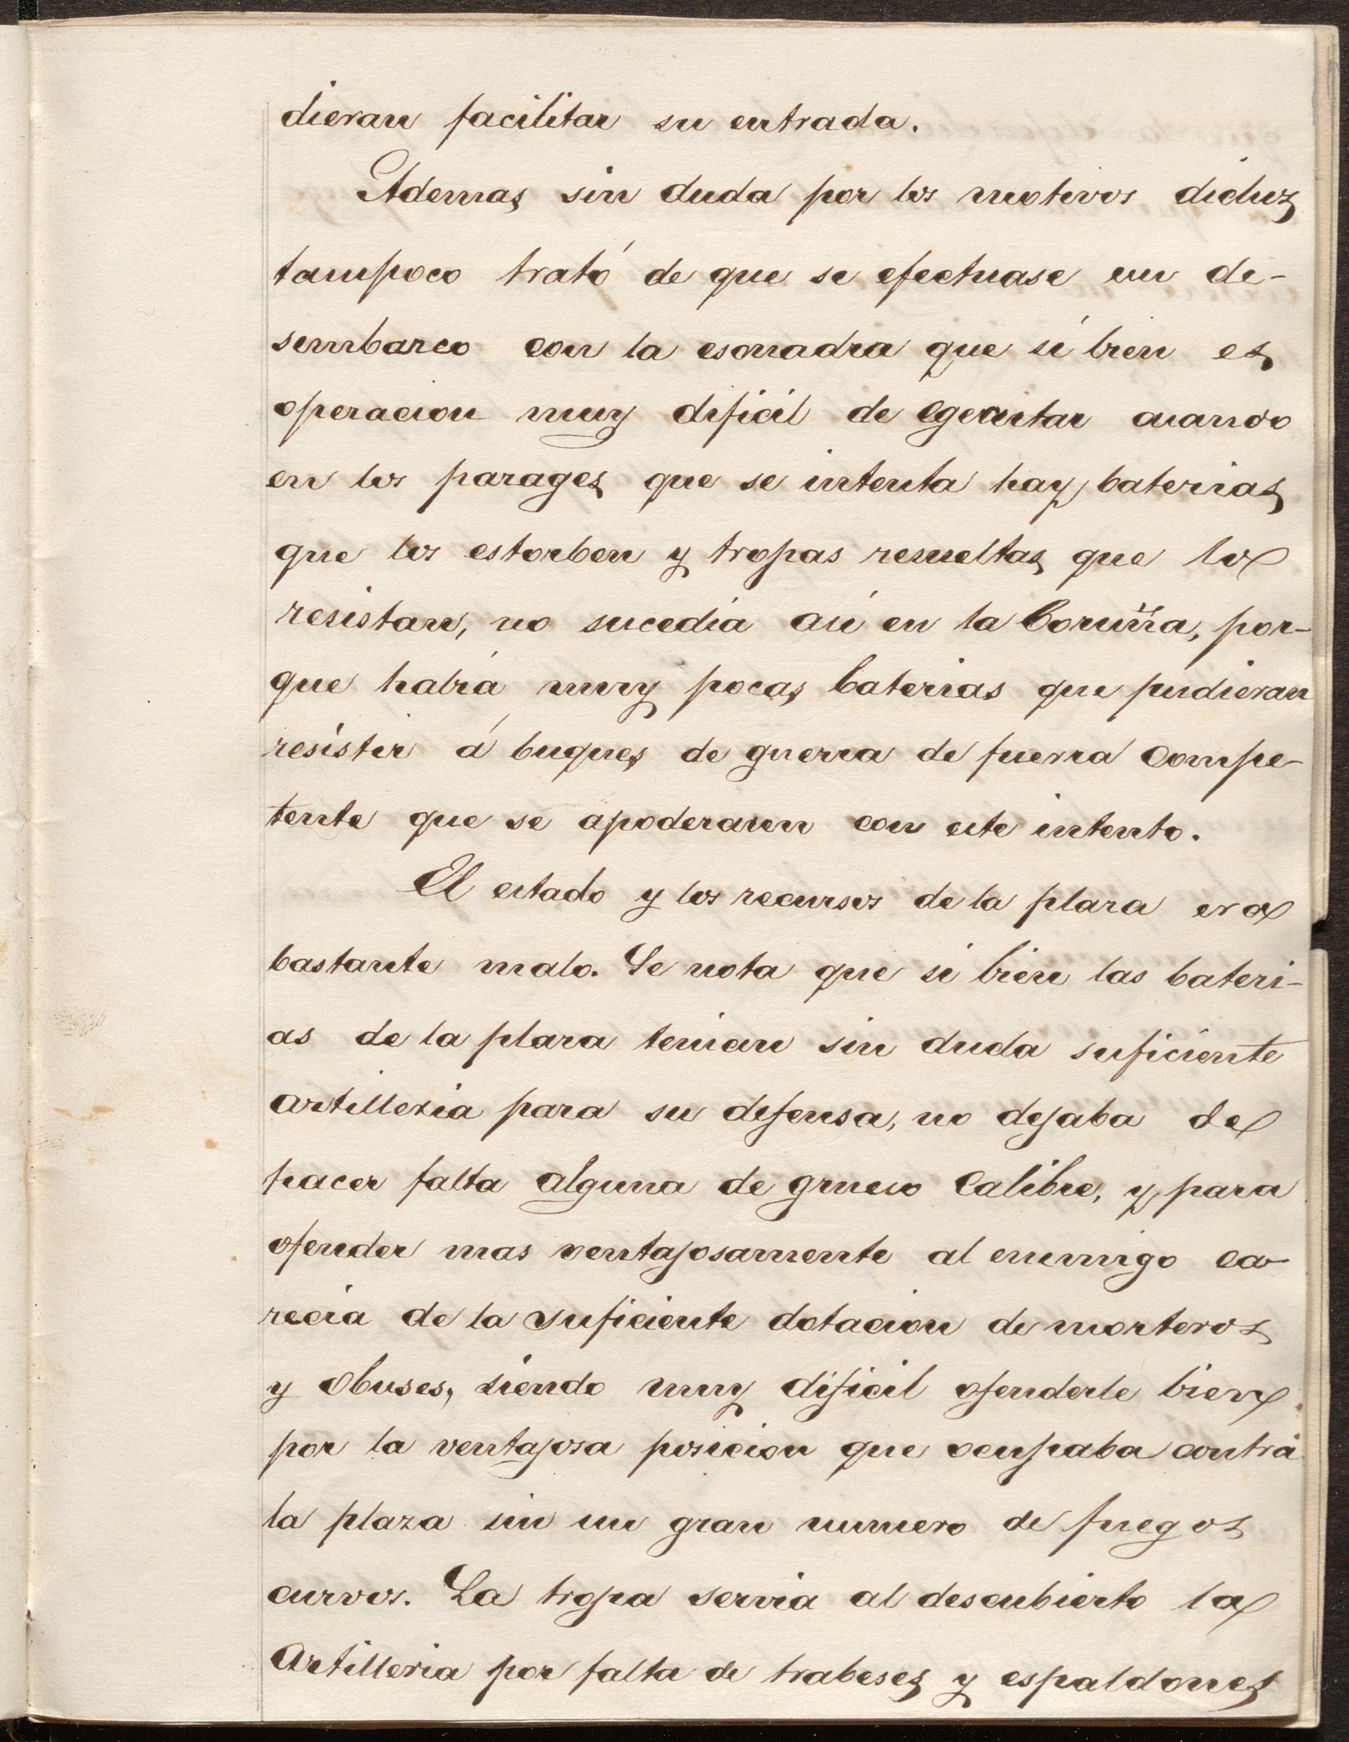 dieran facilitar su entrada.
Ademas sin duda por los motivos dichos
tampoco trató de que se efectuase un de-
sembarco con la escuadra que si bien es
operacion muy dificil de egecutar cuando
en los parages que se intenta hay baterias
que los estorben y tropas resueltas que los
resistan, no sucedia asi en la Coruña, por-
que habia muy pocas baterias que pudieran
resistir á buques de guerra de fuerza compe-
tente que se apoderasen con este intento.
El estado y los recursos de la plaza era
bastante malo. Se nota que si bien las bateri-
as de la plaza tenian sin duda suficiente
artilleria para su defensa, no dejaba de
hacer falta alguna de grueso calibre, y para
ofender mas ventajosamente al enemigo ca-
recia de la suficiente dotacion de morteros
y obuses, siendo muy dificil ofenderle bien
por la ventajosa posicion que ocupaba contra
la plaza sin un gran numero de fuegos
curvos. La tropa servia al descubierto la
artilleria por falta de trabeses y espaldones